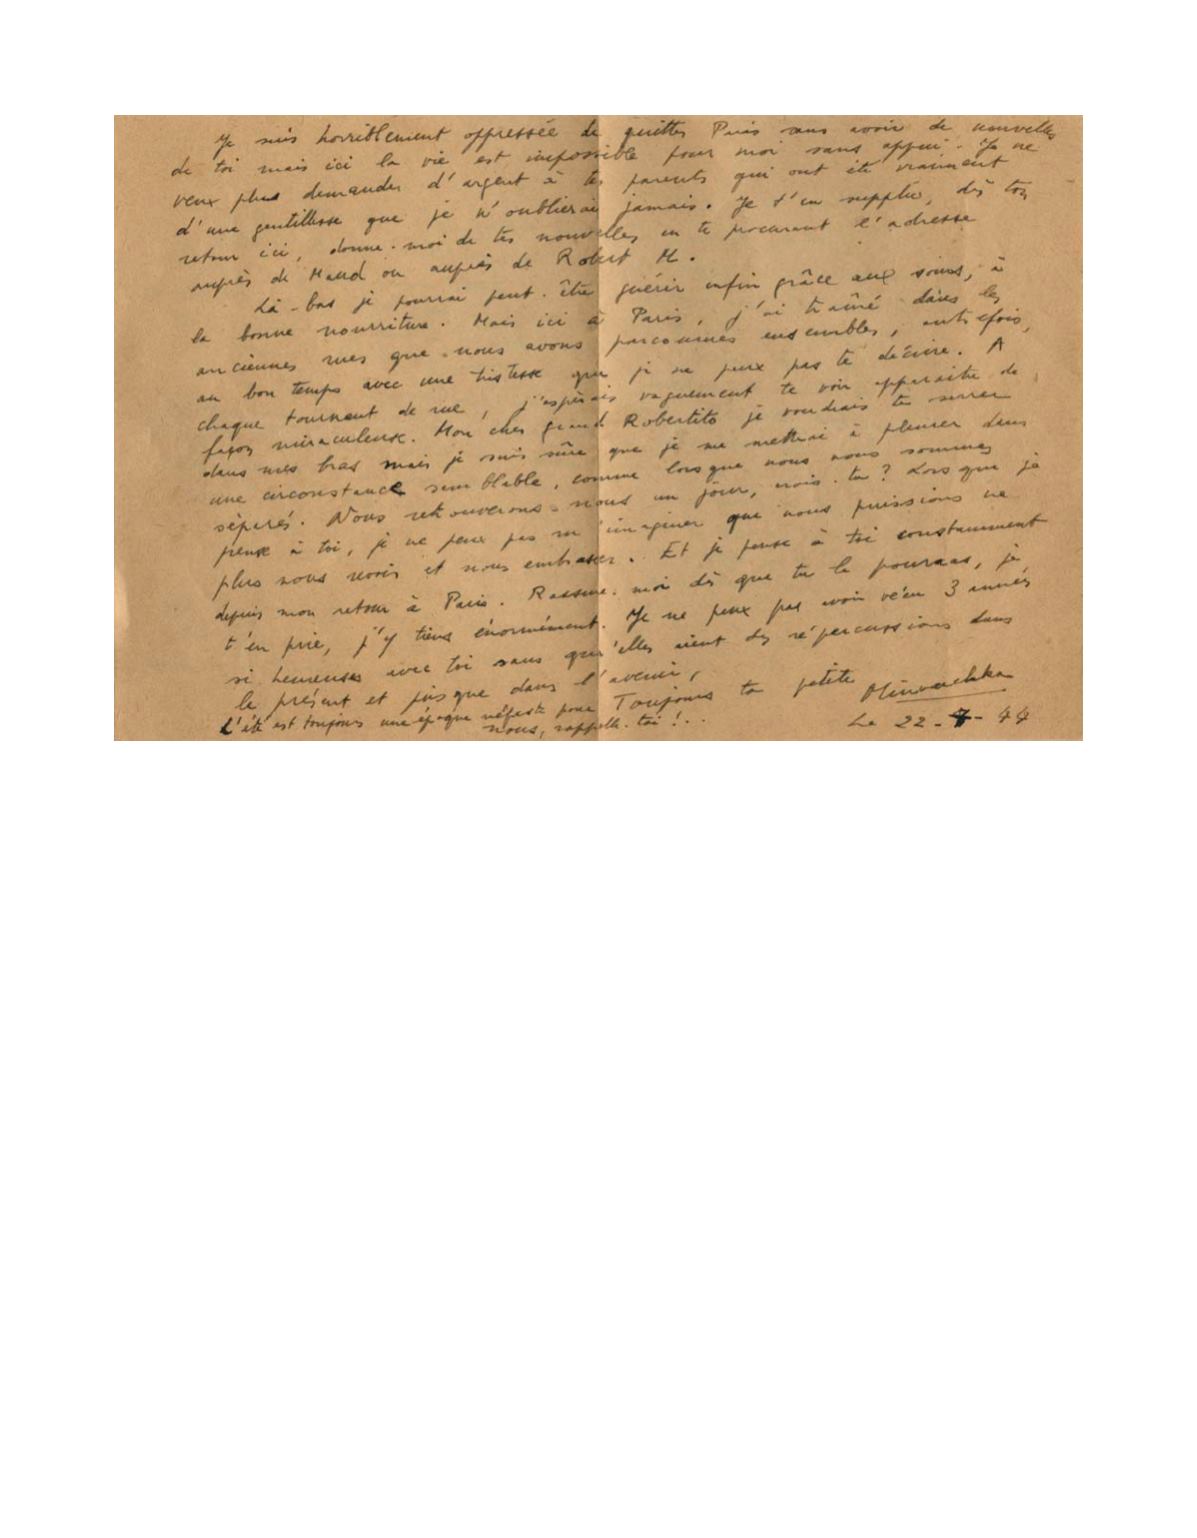 Je suis horriblement oppressée de quitter Paris sans avoir de nouvelles
de toi mais ici la vie est impossible pour moi sans appui. Je ne
veux plus demander d'argent à tes parents qui ont été vraiment
d'une gentillesse que je n'oublierai jamais. Je t'en supplie, dès ton
retour ici, donne-moi de tes nouvelles en te procurant l'adresse
auprès de Maud ou auprès de Robert M.
Là-bas je pourrai peut-être guérir enfin grâce aux soins, à
la bonne nourriture. Mais ici à Paris, j'ai traîné dans les
anciennes rues que nous avons parcourues ensembles, autrefois,
au bon temps avec une tristesse que je ne peux pas te décrire. A
chaque tournant de rue, j'espérais vaguement te voir apparaître de
façon miraculeuse. Mon cher grand Robertito je voudrais te serrer
dans mes bras mais je suis sûre que je me mettrai à pleurer dans
une circonstance semblable, comme lorsque nous nous sommes
séparés. Nous retrouverons-nous un jour, crois-tu? Lorsque je
pense à toi, je ne peux pas m'imaginer que nous puissions ne
plus nous revoir et nous embrasser. Et je pense à toi constamment
depuis mon retour à Paris. Rassure-moi dès que tu le pourras, je
t'en prie, j'y tiens énormément. Je ne peux pas avoir vécu 3 années
si heureuses avec toi sans qu'elles aient des répercussions dans
le présent et jusque dans l'avenir,
Toujours ta petite
L'été est toujours une époque néfaste pour
nous, rappelle-toi!..
Le 22-7-44